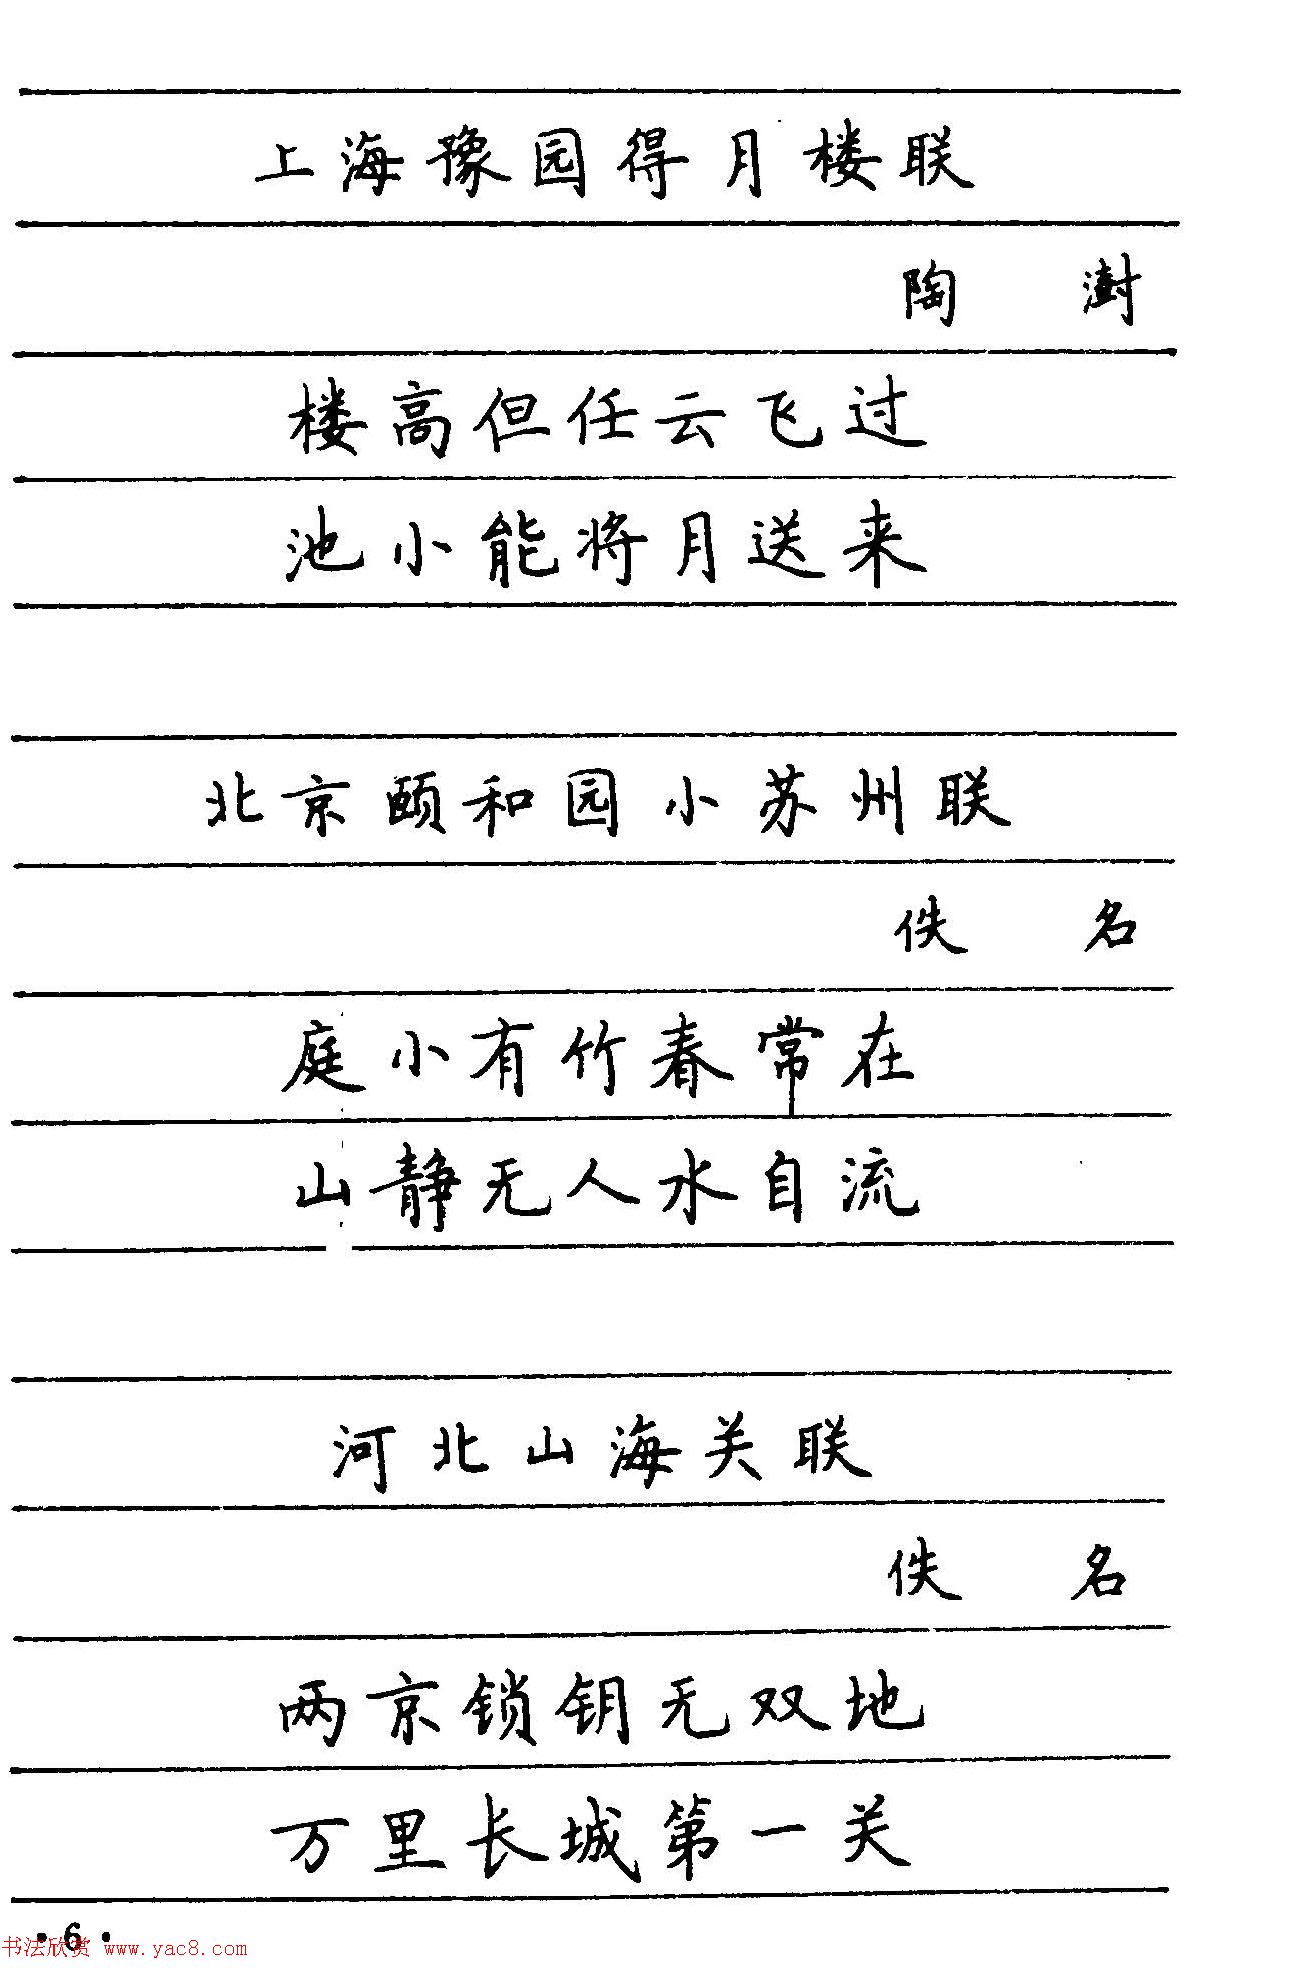 上海豫园得月楼联
陶 澍
楼高但任云飞过
池小能将月送来
北京颐和园小苏州联
佚 名
庭小有竹春常在
山静无人水自流
河北山海关联
佚 名
两京锁钥无双地
万里长城第一关
·6·
书法欣赏 www.yac8.com